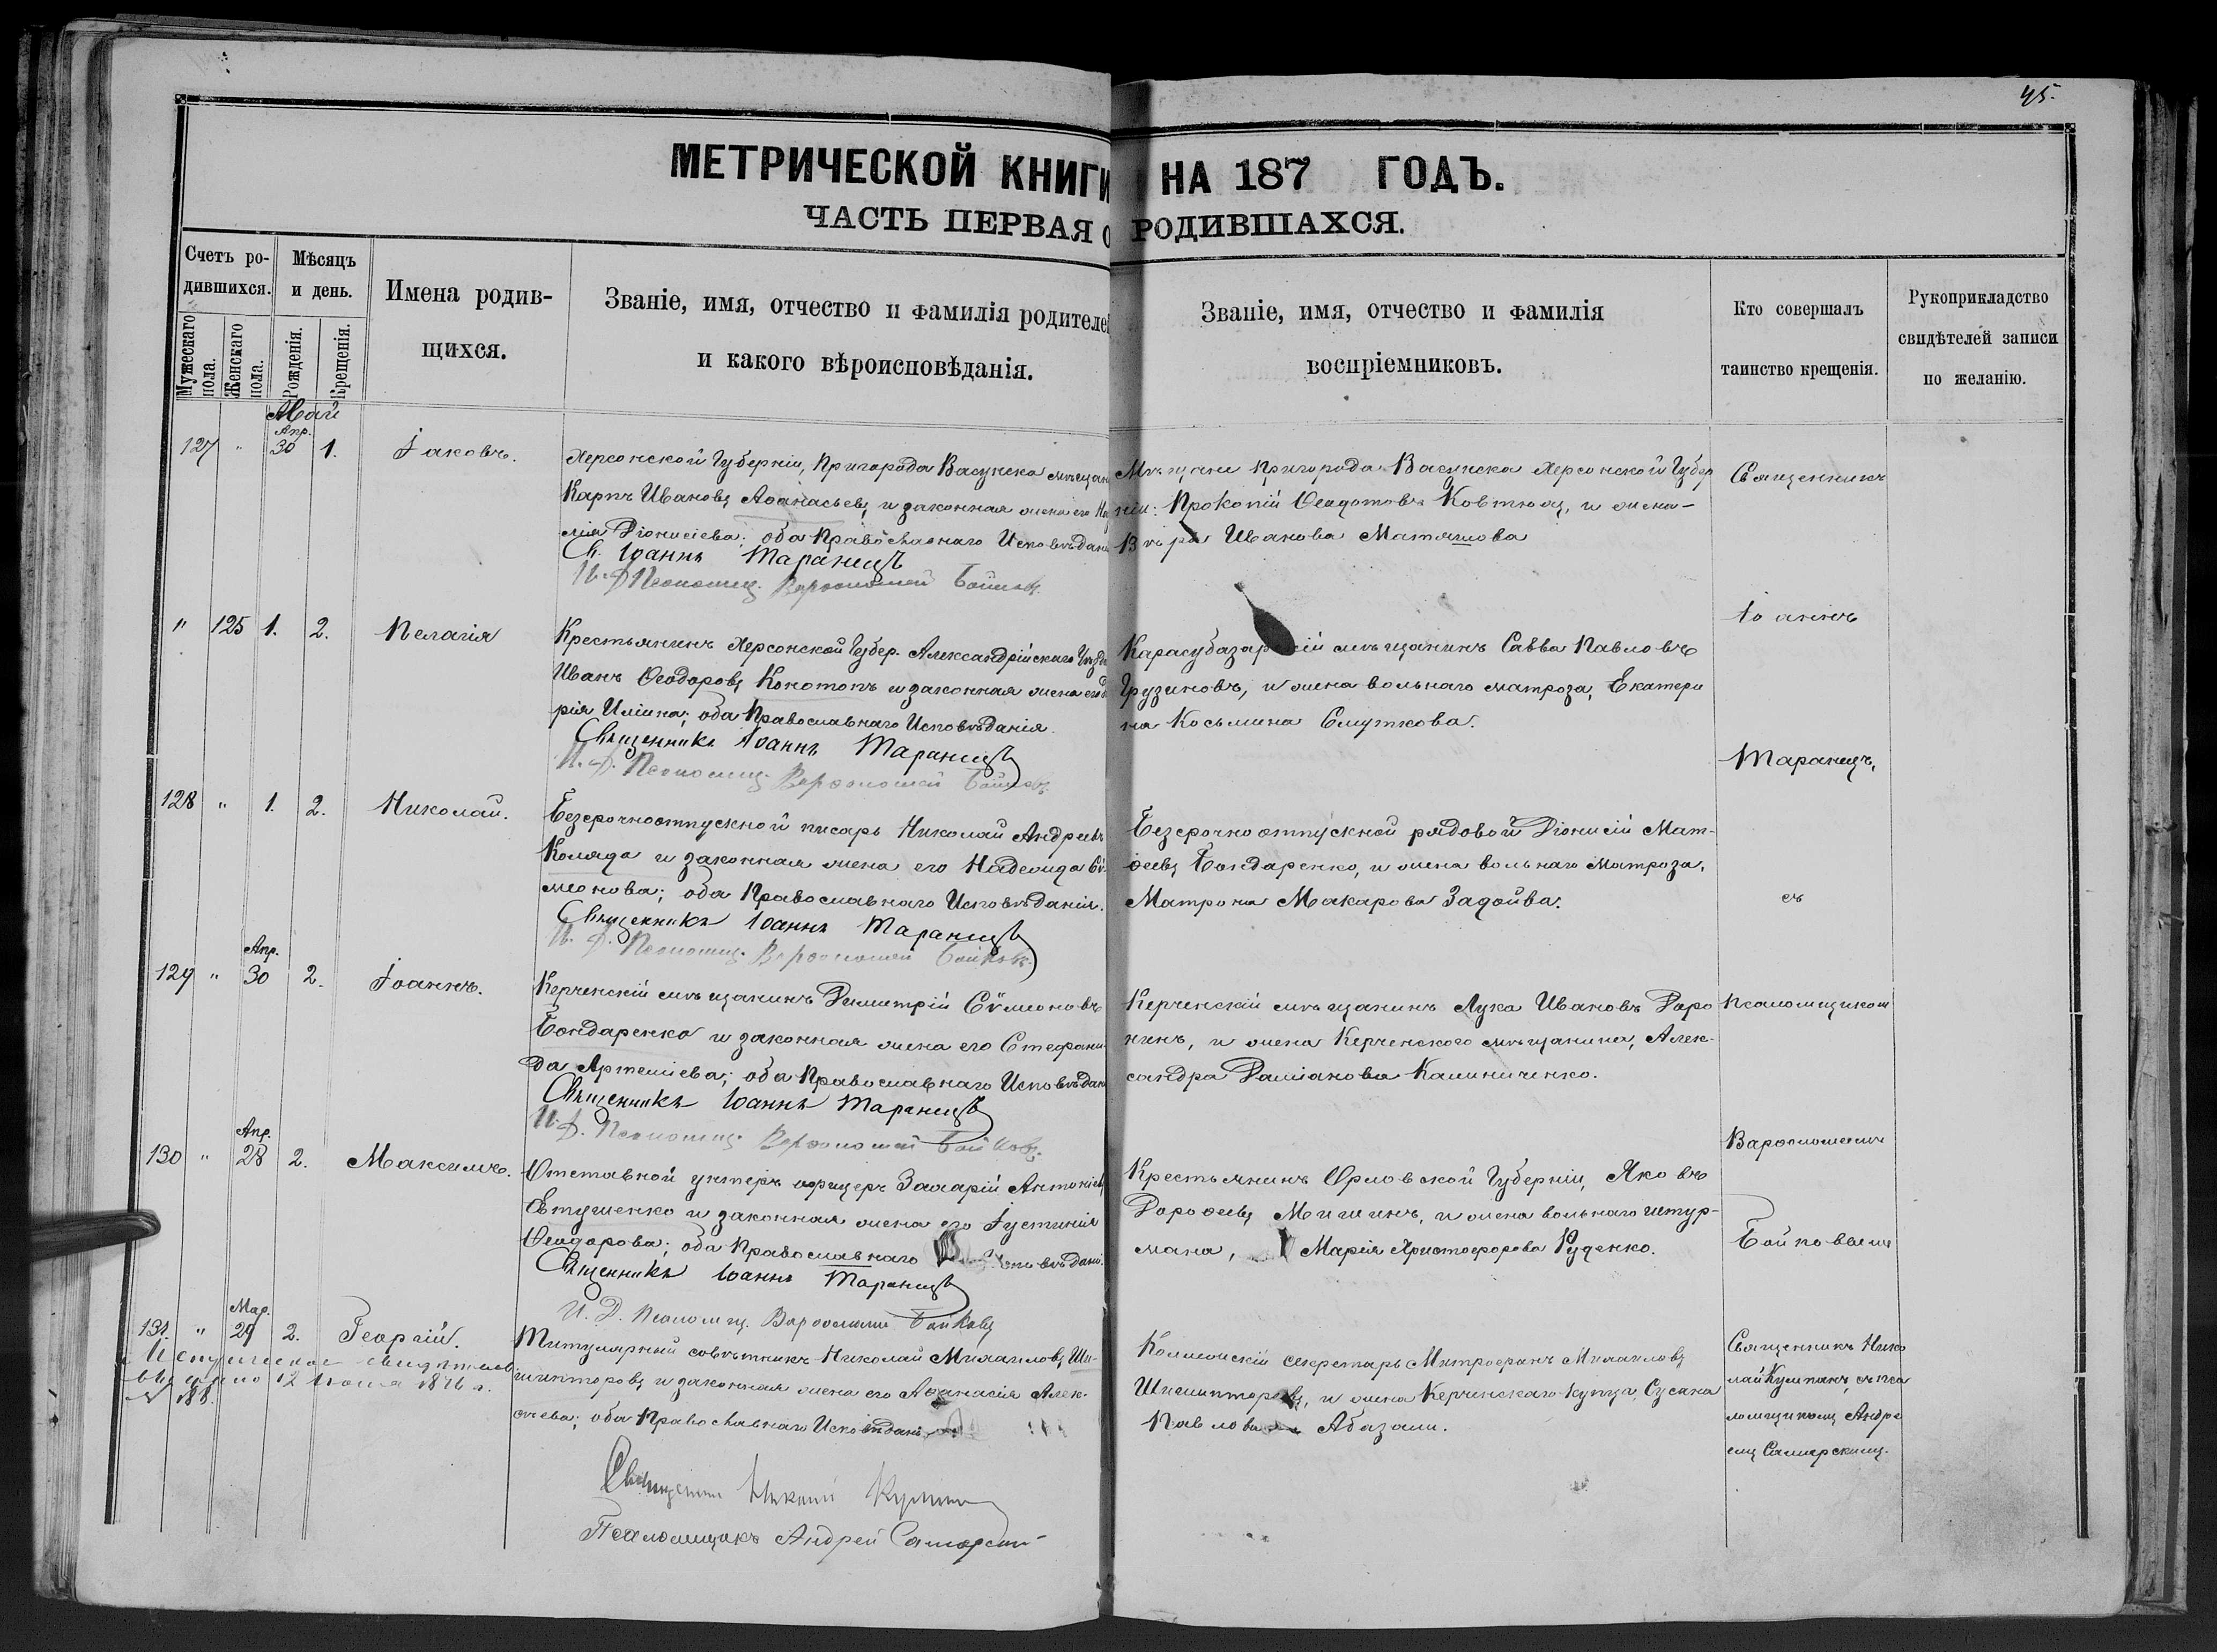 45.
МЕТРИЧЕСКОЙ КНИГИ НА 187 ГОДЪ.
ЧАСТЬ ПЕРВАЯ О РОДИВШАХСЯ.
Счетъ ро-
дившихся.
Мужескаго пола.
Женскаго пола.
Мѣсяцъ
и день.
Рожденія.
Крещенія.
Имена родив-
щихся.
Званіе, имя, отчество и фамилія родителе
и какого вѣроисповѣданія.
Званіе, имя, отчество и фамилія
воспріемниковъ.
Кто совершалъ
таинство крещенія.
Рукоприкладство
свидѣтелей записи
по желанію.
Май
127 " Апр. 30 1. Іаковъ.
Херсонской Губерніи, Пригорода мѣщан
Карпъ Ивановъ Аѳанасьевъ и законная жена его На
лія Діонисіева; оба Православнаго Исповѣдані
С. Іоаннъ Таранецъ
И. Д. Псаломщ. Варѳоломей Бойковъ.
Мѣщане Пригорода Херсонской Губер
ніи: Прокопій Ѳеодотовъ Ковтюхъ, и жена-
Вѣра Иванова
Священникъ
" 125 1. 2. Пелагія
Крестьянинъ Херсонской Губер. Александрійскаго Уѣзда
Иванъ Ѳеодоровъ Конотопъ и законная жена его
рія Иліина; оба Православнаго Исповѣданія.
Священникъ Іоаннъ Таранецъ
И. Д. Псаломщ. Варѳоломей Бойковъ
Карасубазарскій мѣщанинъ Савва Павловъ
Грузиновъ, и жена вольнаго матроза, Екатери
на Косьмина Смуткова.
Іоаннъ
Таранецъ,
128 " 1. 2. Николай.
Безсрочноотпускной писарь Николай Андреевъ
Коляда и законная жена его Надежда Сѵ
меонова; оба Православнаго Исповѣданія.
Священникъ Іоаннъ Таранецъ
И. Д. Псаломщ. Варѳоломей Бойковъ.
Безсрочно отпускной рядовой Діонисій Мат-
ѳеевъ Бондаренко, и жена вольнаго матроза,
Матрона Макарова Задойва.
съ
129 " Апр. 30 2. Іоаннъ.
Керченскій мѣщанинъ Димитрій Сѵмеоновъ
Бондаренко и законная жена его Стефани
да Артеміева; оба Православнаго Исповѣдан
Священникъ Іоаннъ Таранецъ
И. Д. Псаломщ. Варѳоломей Бойковъ.
Керченскій мѣщанинъ Лука Ивановъ Доро
нинъ, и жена Керченскаго мѣщанина, Алек-
сандра Даміанова Калиниченко.
Псаломщиком
130 " Апр. 28 2. Максимъ.
Отставной унтеръ офицеръ Захарій Антоніев
Евтушенко и законная жена его Іустинія
Ѳеодорова; оба Православнаго Исповѣдані.
Священникъ Іоаннъ Таранецъ
И. Д. Псаломщ. Варѳоломей Бойковъ
Крестьянинъ Орловской Губерніи, Яковъ
Дороѳеевъ Мишинъ, и жена вольнаго штур-
мана, Марія Христофорова Руденко.
Варѳоломеемъ
Бойковымъ
131. " Мар. 29 2. Георгій.
Метрическое свидѣтельс.
выдано 12 1876 г.
№ 188.
Титулярный совѣтникъ Николай Михаиловъ Ши-
шинторовъ и законная жена его Аѳанасія Алек-
сѣева; оба Православнаго Исповѣдані
Священникъ Николай Кулпанъ
Псаломщикъ Андрей Самарскій
Коллежскій секретарь Митрофанъ Михаиловъ
Шишинторовъ, и жена Керченскаго купца Сусана
Павлова Абазали.
Священникъ Нико
лай Кулпанъ, съ пса
ломщикомъ Андре
емъ Самарскимъ.